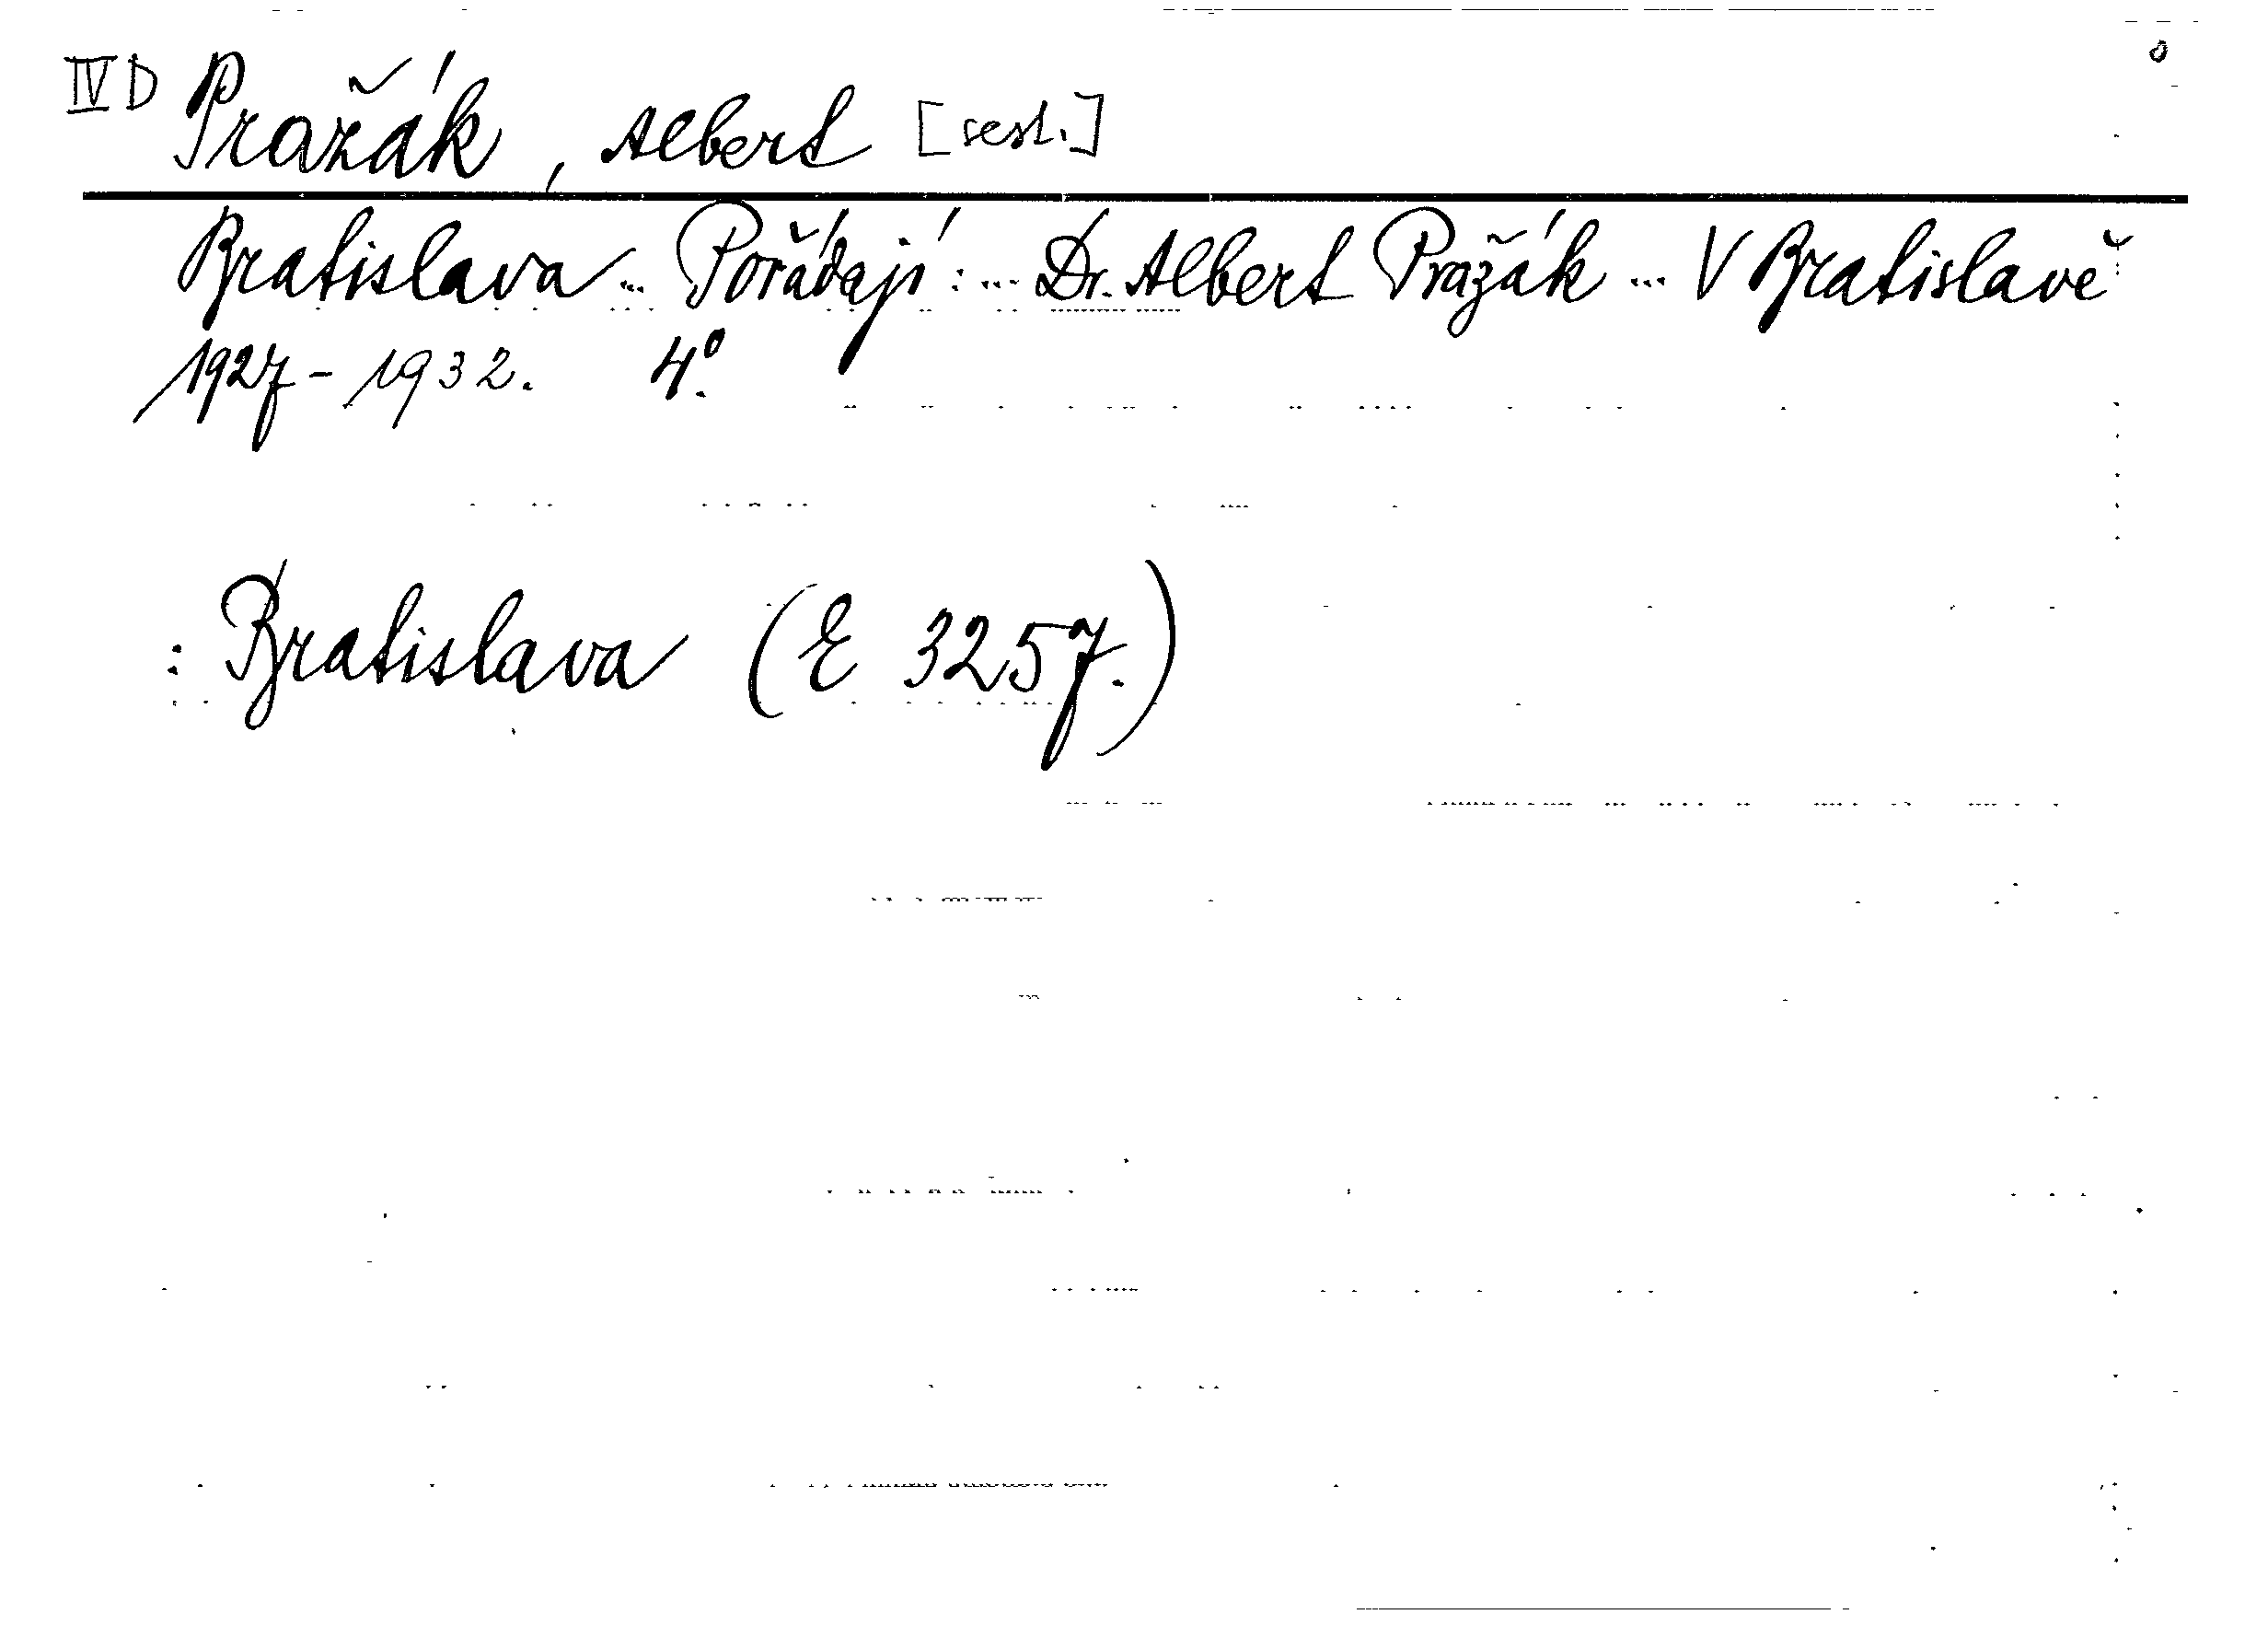 IV D Pražák, Albert [sest.]
Bratislava... Pořádají: ... Dr. Albert Pražák ... V Bratislavě
1927 - 1932. 4º.
: Bratislava (E 3257.)